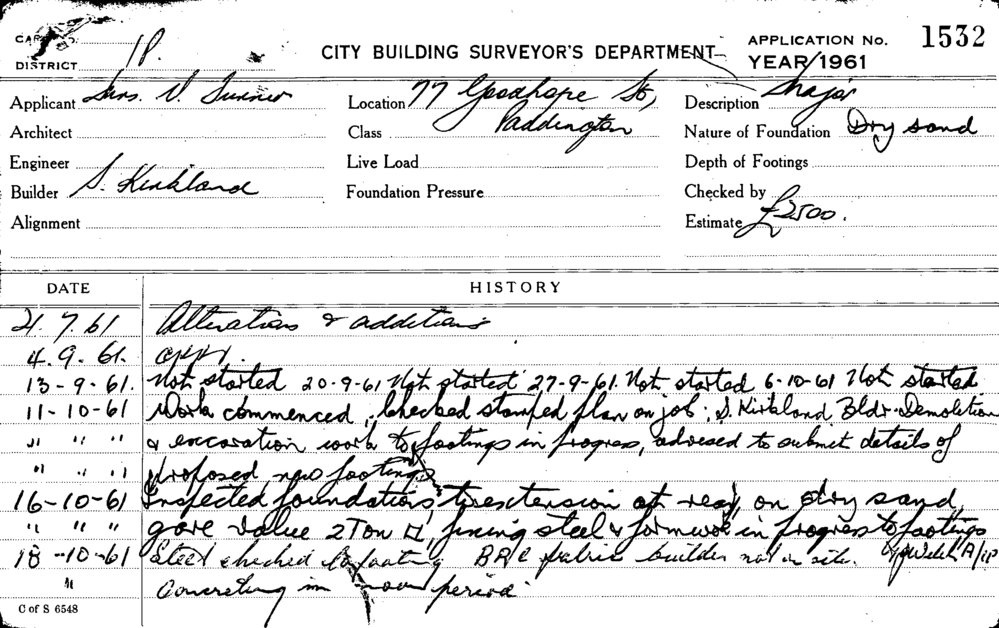 CARD No.
DISTRICT 1P.
CITY BUILDING SURVEYOR'S DEPARTMENT
APPLICATION No. 1532
YEAR 1961
Applicant Mrs. V. Turner
Location 77 Goodhope St,
Paddington
Description Major
Architect
Class
Nature of Foundation Dry sand
Engineer
Live Load
Depth of Footings
Builder S. Kirkland
Foundation Pressure
Checked by
Alignment
Estimate £2500.
DATE HISTORY
21.7.61 Alterations & additions
4.9.61. appr.
13-9-61. Not started 20-9-61 Not started 27-9-61. Not started 6-10-61 Not started
11-10-61 Work commenced, Checked stamped plan on job, S. Kirkland Bldr. Demolition
" " " & excavation work to footings in progress, advised to submit details of
" " " proposed new footings
16-10-61 Inspected foundations to extension at rear, on dry sand,
" " " gave value 2 Ton □', fixing steel & formwork in progress to footings
18-10-61 Steel checked to footing BRC fabric builder not on site.
" Concreting in noon period
C of S 6548